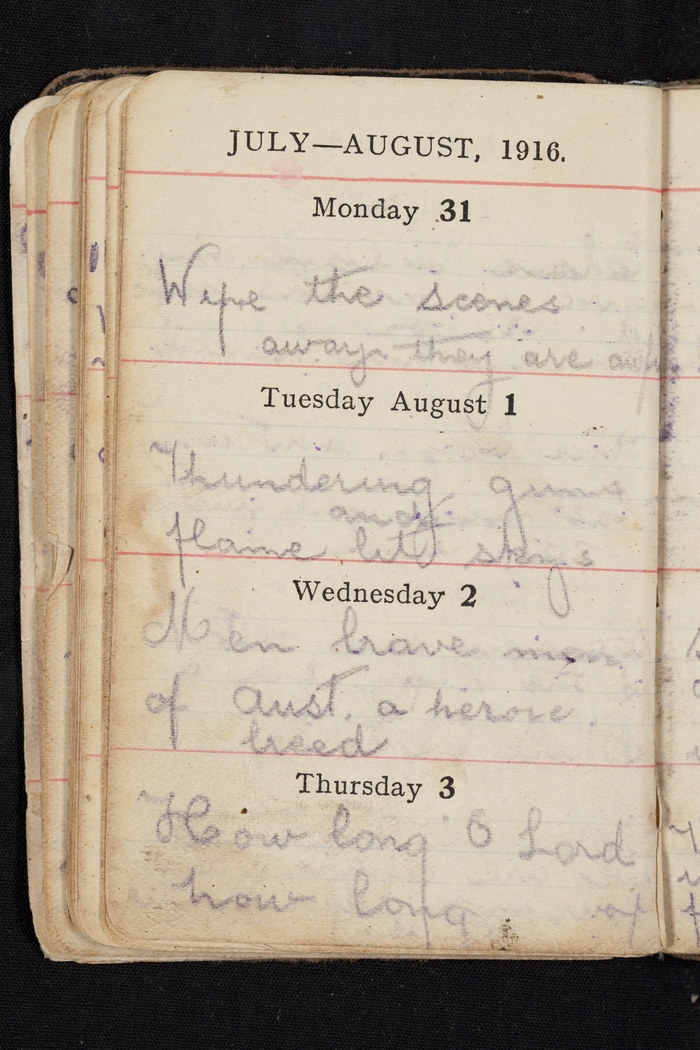 JULY—AUGUST, 1916.
Monday 31
Wipe the scenes
away they are
Tuesday August 1
Thundering guns
and
flame lit skys
Wednesday 2
Men brave men
of Aust. a heroic.
breed
Thursday 3
How long O Lord
how long